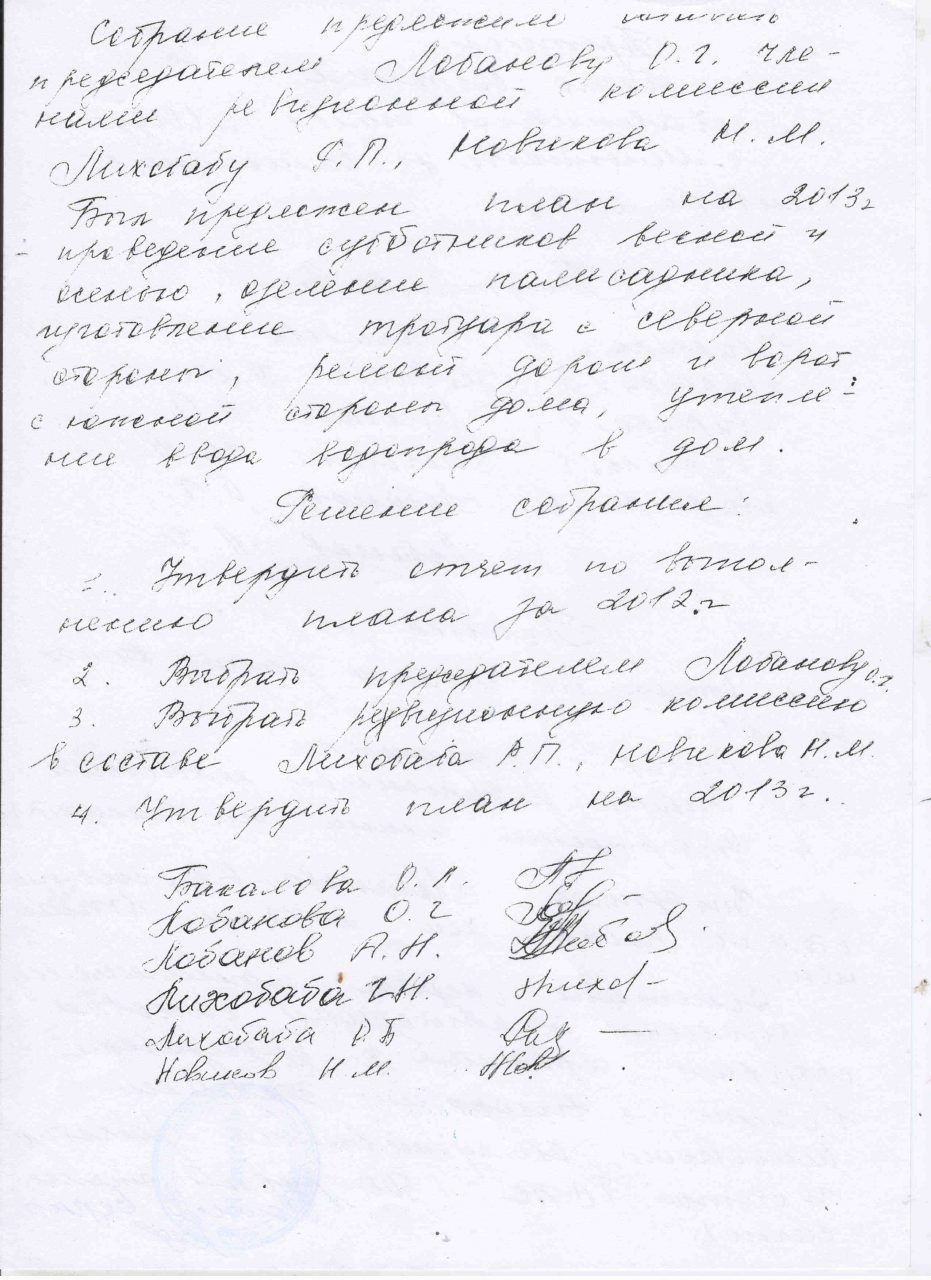 Собрание предложило
председателем Лобанову О.Г. чле-
нами ревизионной комиссии
Лихобабу Р.П., Новикова Н.М.
Был предложен план на 2013г
проведение субботников весной и
осенью, озеленение палисадника,
изготовление тротуара с северной
стороны, ремонт дороги и ворот
с южной стороны дома, утепле-
ние ввода водопровода в дом.
Решение собрания:
1. Утвердить отчет по выпол-
нению плана за 2012г
2. Выбрать председателем Лобанову О.Г.
3. Выбрать ревизионную комиссию
в составе Лихобаба Р.П., Новикова Н.М.
4. Утвердить план на 2013г.
Бакалова О.А.
Лобанова О.Г
Лобанов А.Н.
Лихобаба Г.Н.
Лихобаба Р.П
Новиков Н.М.